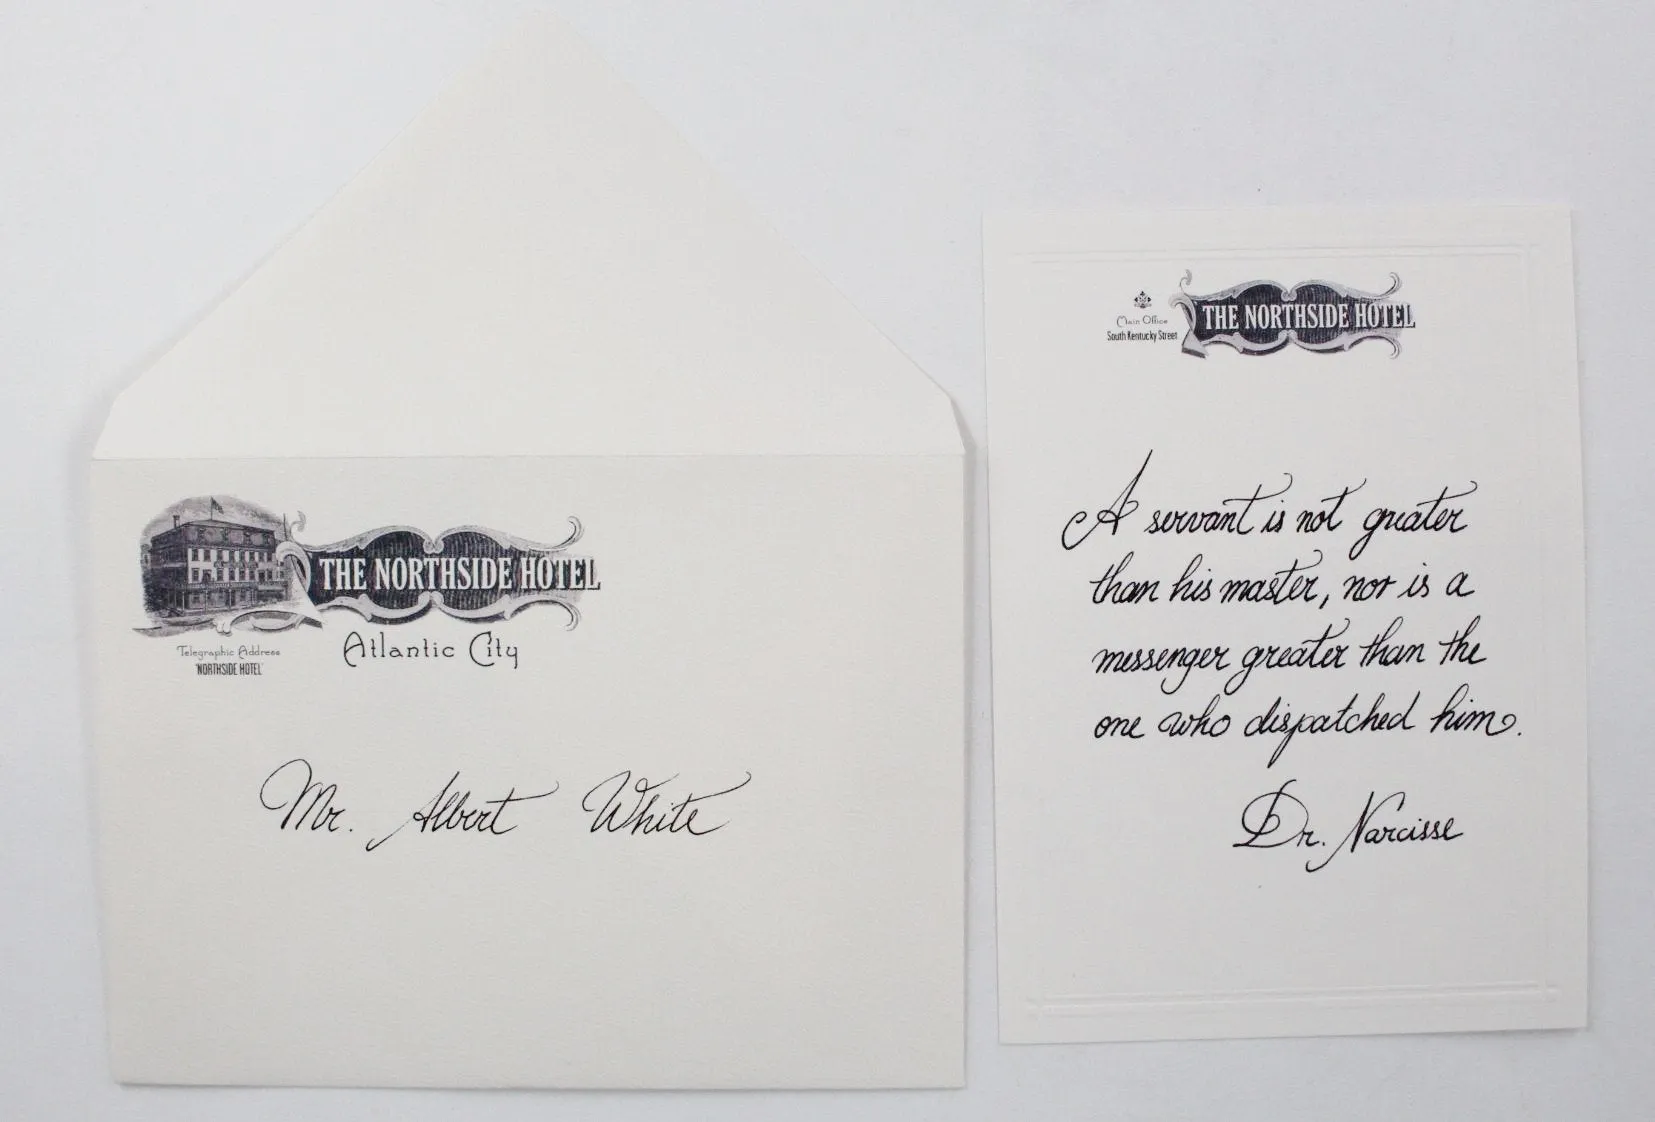 THE NORTHSIDE HOTEL
Atlantic City
Telegraphic Address
"NORTHSIDE HOTEL"
Mr. Albert White
Main Office
South Kentucky Street
THE NORTHSIDE HOTEL
A servant is not greater
than his master, nor is a
messenger greater than the
one who dispatched him.
Dr. Narcisse